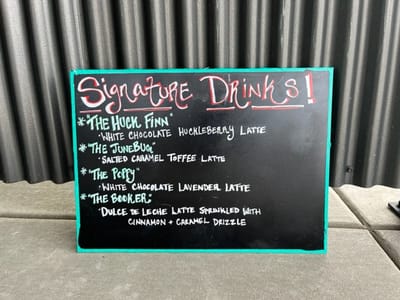 Signature Drinks!
* "The Huck Finn"
· White Chocolate Huckleberry Latte
* "The JuneBug"
· Salted Caramel Toffee Latte
* "The Poppy"
· White Chocolate Lavender Latte
* "The Booker:"
· Dulce de Leche Latte Sprinkled with
Cinnamon + Caramel Drizzle